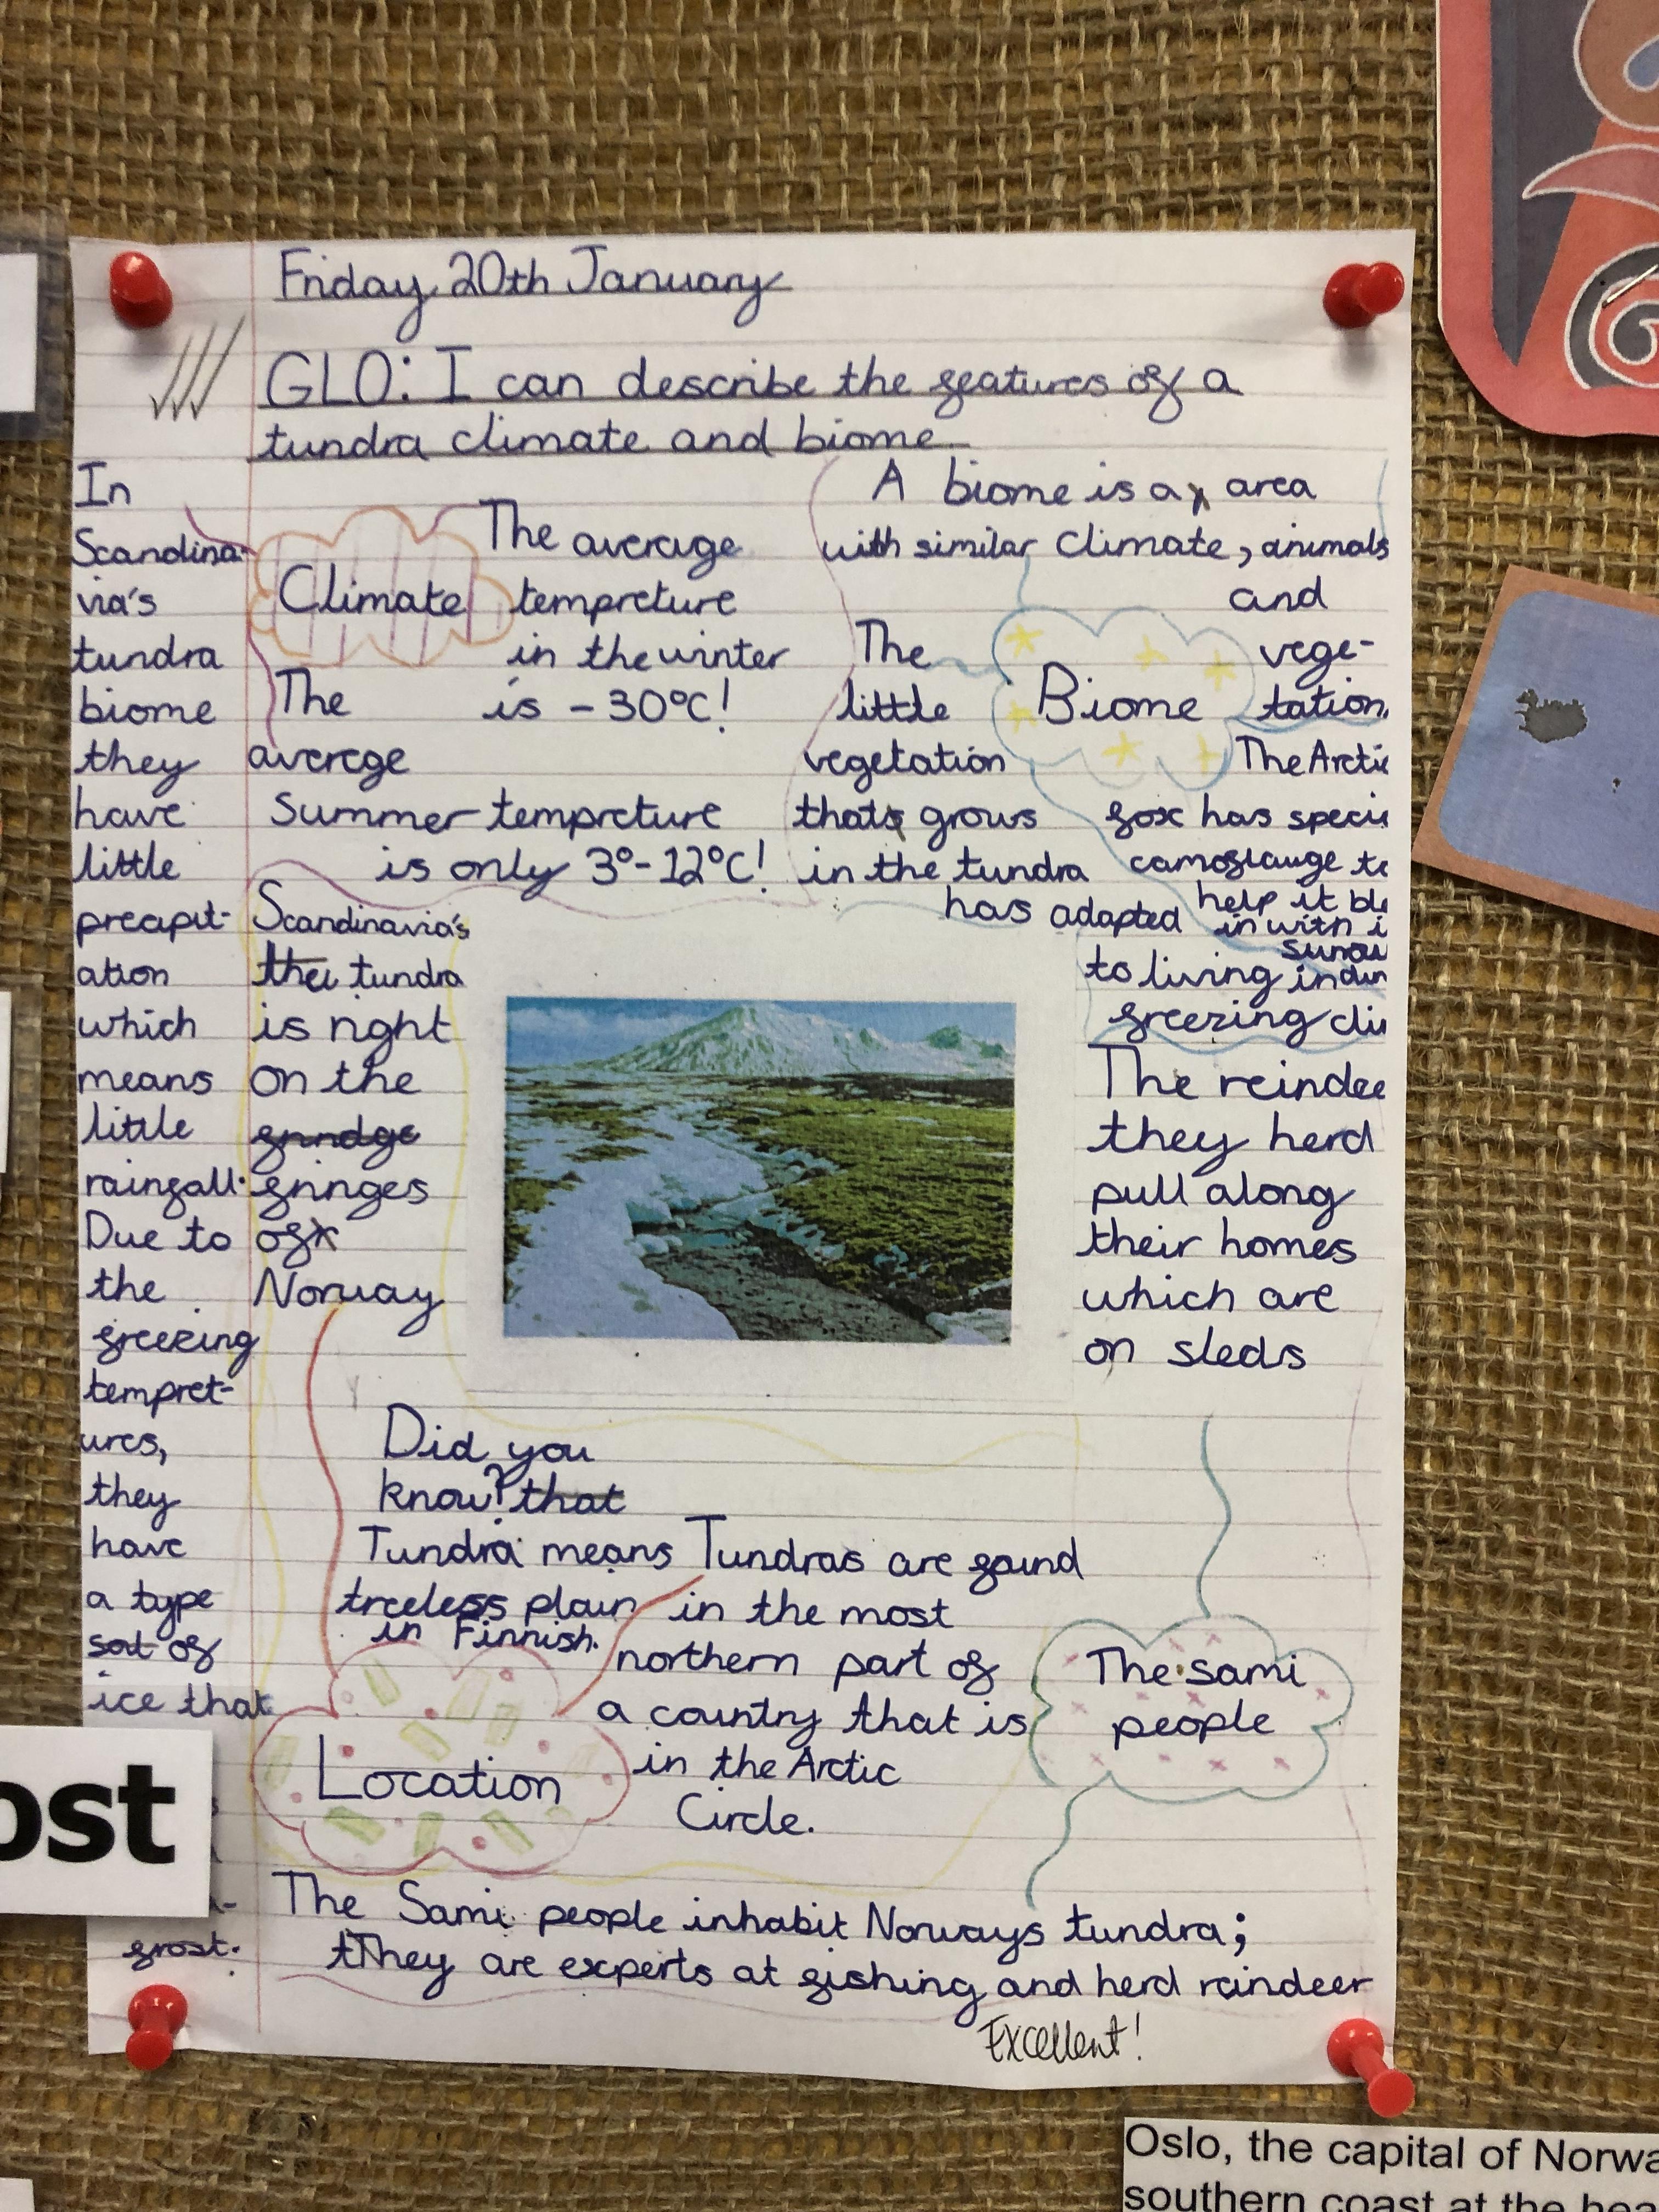 Friday 20th January
GLO: I can describe the features of a
tundra climate and biome.
In
Scandina-
via's
tundra
biome
they
have
little
precipit-
ation
which
means
little
rainfall.
Due to
the
freezing
tempret-
ures,
they
have
a type
sort of
ice that
frost.
Climate
The average
tempreture
in the winter
is -30°C!
The
averege
Summer tempreture
is only 3°-12°C!
A biome is a area
with similar climate, animals
and
vege-
tation.
Biome
The
little
vegetation
thats grows
in the tundra
has adapted
to living in
freezing
The Arctic
fox has
camoflauge
help it
in with
Scandinavia's
the tundra
is right
on the
frindge
fringes
of
Norway
The
they herd
pull along
their homes
which are
on sleds
Did you
know? that
Tundra means
treeless plain
in Finnish.
Tundras are found
in the most
northern part of
a country that is
in the Arctic
Circle.
Location
The Sami
people
The Sami people inhabit Norways tundra;
They are experts at fishing and herd reindeer
Excellent!
ost
Oslo, the capital of
southern coast at the